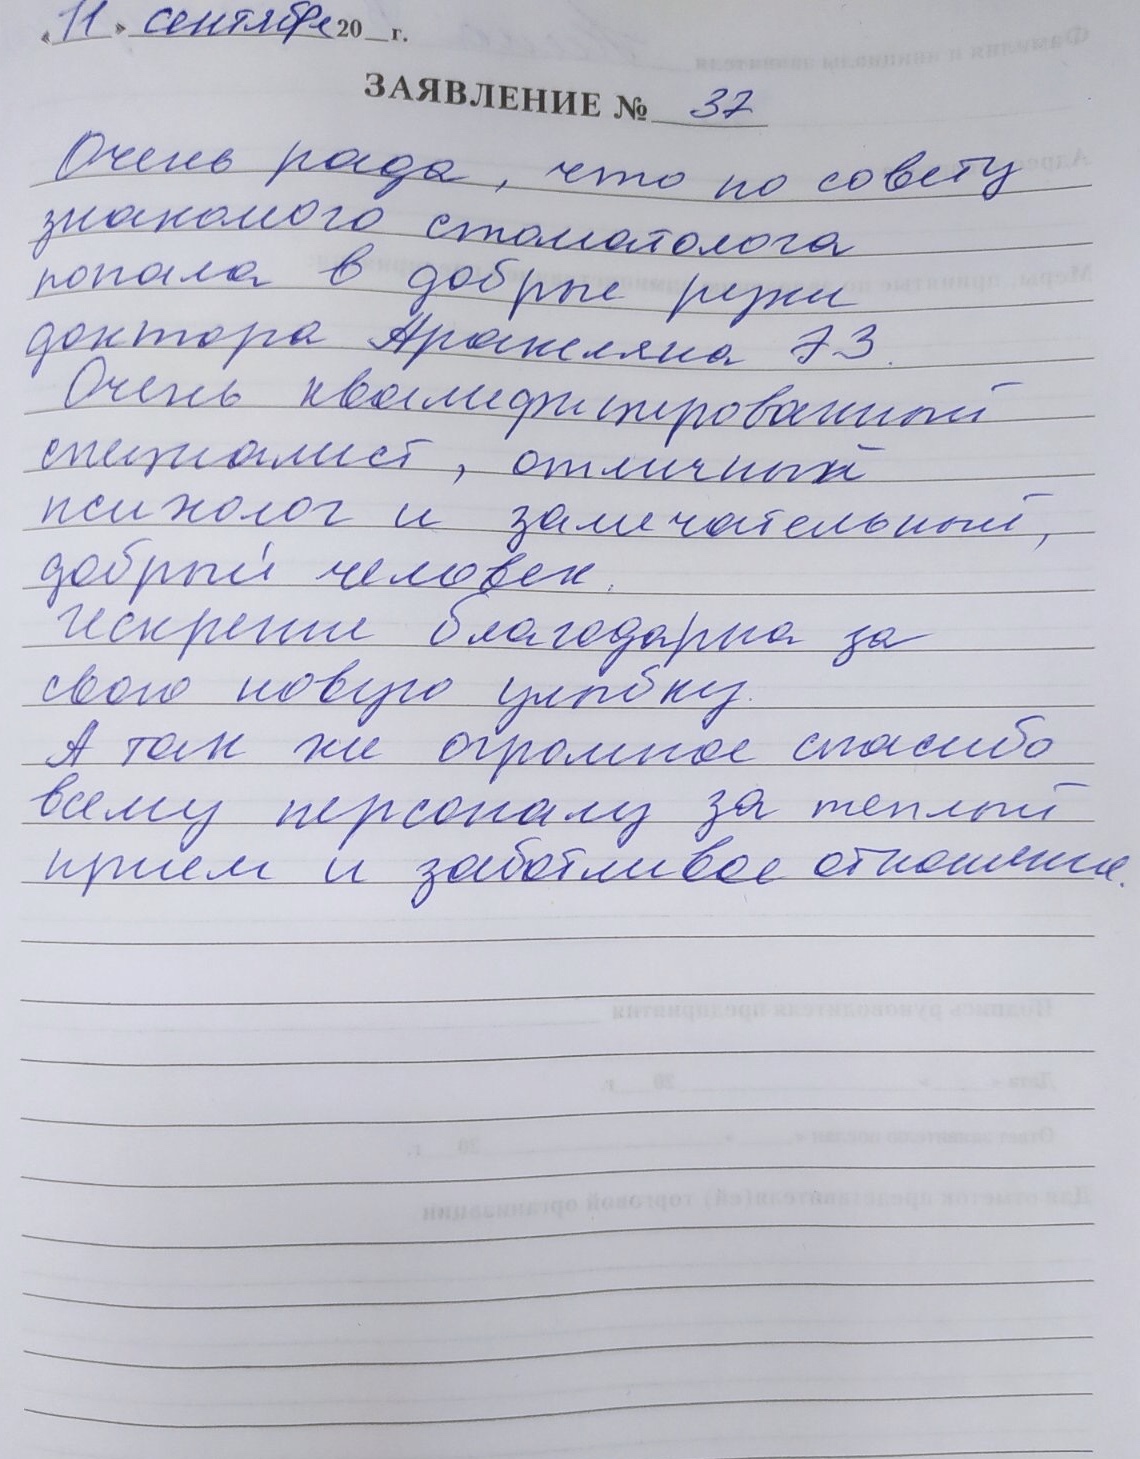 «11» сентября 20__г.
ЗАЯВЛЕНИЕ № 37
Очень рада, что по совету
знакомого стоматолога
попала в добрые руки
доктора Аракеляна
Очень квалифицированный
специалист, отличный
психолог и замечательный,
добрый человек.
Искренне благодарна за
свою новую улыбку.
А так же огромное спасибо
всему персоналу за теплый
прием и заботливое отношение.